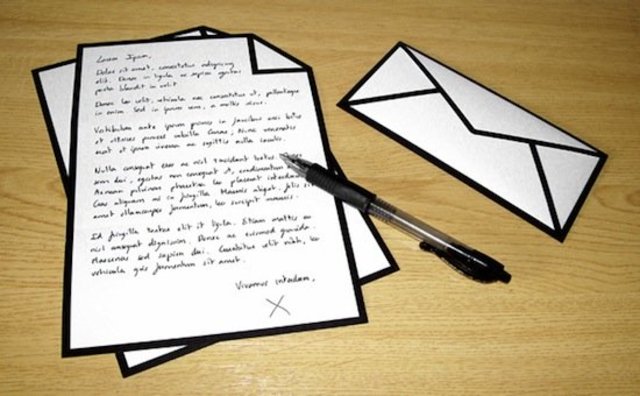 Lorem Ipsum,
Dolor sit amet, consectetur adipiscing
elit. Donec in ligula ac sapien egestas
porta blandit in velit.
Donec leo velit, vehicula nec consectetur et, pellentesque
in enim. Sed in ipsum sem, a mollis
Vestibulum ante ipsum primis in faucibus orci luctus
et ultrices posuere cubilia Curae; Nunc venenatis
erat et ipsum viverra ac sagittis nulla iaculis.
Nulla consequat erat ac nisl tincidunt tristique
sem dui, egestas non consequat et, condimentum
Aenean pulvinar pharetra leo placerat interdum
Cras aliquam mi in fringilla. Mauris aliquet, felis sit
amet ullamcorper fermentum, leo suscipit
Id fringilla tortor elit et ligula. Etiam mattis ex
nisl consequat dignissim. Donec ac euismod gravida.
Maecenas sed sapien dui. Curabitur velit nibh, leo
vehicula quis fermentum sit amet.
Vivamus interdum,
X